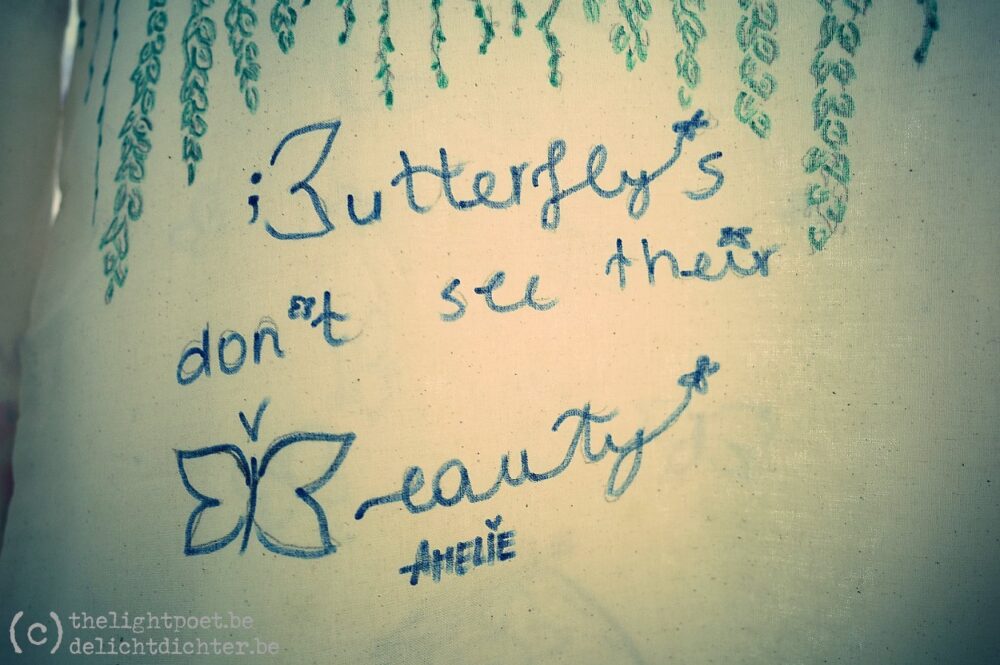 ;Butterfly's
don't see their
Beauty
AMELIE
(c) thelightpoet.be
delichtdichter.be